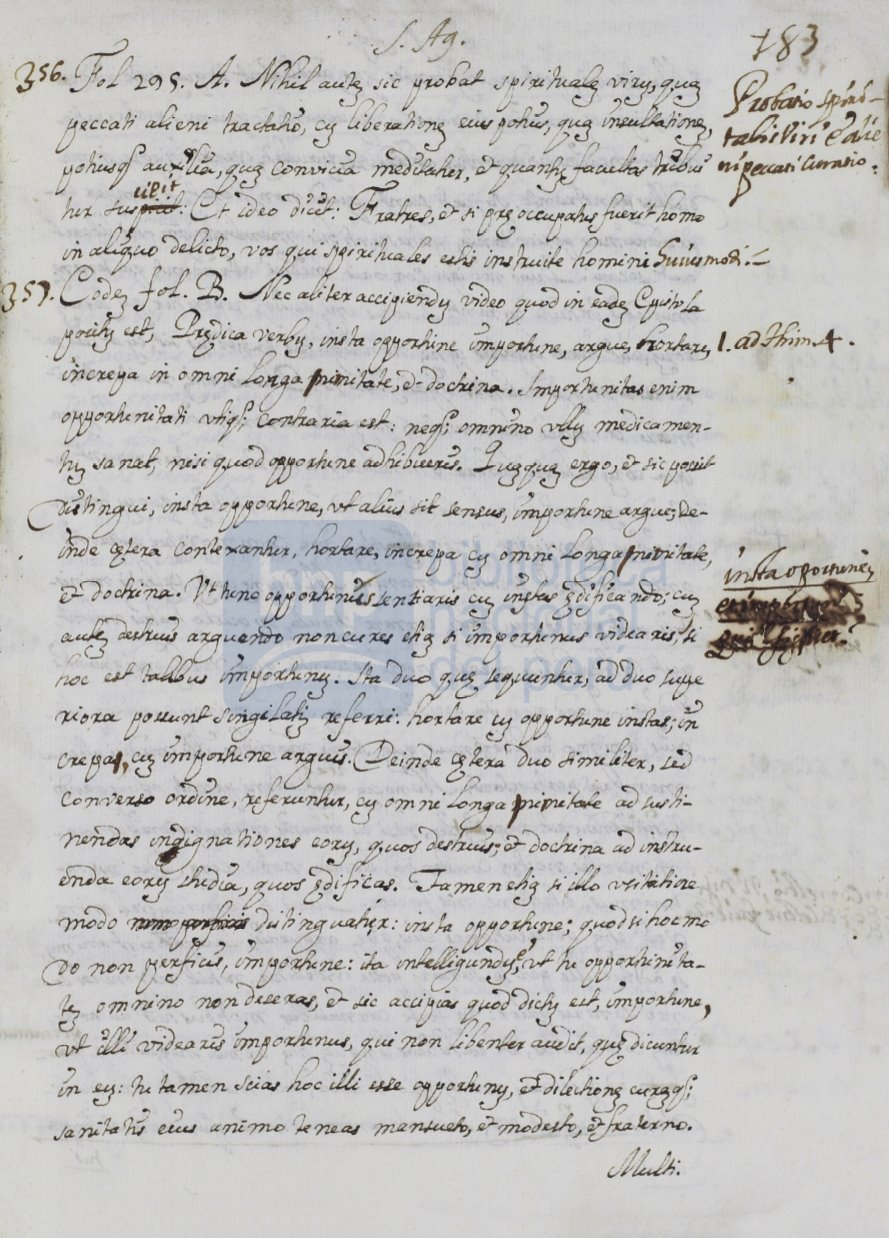 S. Ag.
183
356. Fol 295. A. Nihil autẽ sic probat spiritualẽ virũ, quã
peccati alieni tractatio, cũ liberationẽ eius potius, quã insultationẽ,
potiusq; auxilia, quã convicia meditatur, et quantũ facultas tribui
tur suscipit: Et ideo dicit: Fratres, et si pręoccupatus fuerit homo
in aliquo delicto, vos qui spirituales estis instruite homini huiusmodi.
Probatio spiri-
talis Viri ẽ alie
ni peccati Curatio.
357. Eodẽ fol. B. Nec aliter accipiendũ video quod in eadẽ Epistola
positũ est, Prędica verbũ, insta opportune importune, argue, hortare,
1. ad Thim. 4.
increpa in omni longanimitate, et doctrina. Importunitas enim
opportunitati utiq; contraria est: neq; omnino ullũ medicamen-
tũ sanat, nisi quod opportune adhibueris. Quãquã ergo, et sic possit
distingui, insta opportune, ut alius sit sensus, importune argue; de-
inde cętera contexantur, hortare, increpa cũ omni longanimitate,
et doctrina. Ut tunc opportunus sentiaris cũ instas ędificando; cũ
autẽ destruis arguendo non cures etiã si importunus videaris, si
hoc est talibus importunũ. Ita duo quę sequuntur, ad duo supe
riora possunt singilatĩ referri: hortare cũ opportune instas; in
crepas, cũ importune arguis. Deinde cętera duo similiter, sed
converso ordine, referuntur, cũ omni longanimitate ad susti-
nendas indignationes eorũ, quos destruis; et doctrina ad instru-
enda eorũ studia, quos ędificas. Tamen etiã si illo usitatiore
modo distinguatur: insta opportune; quod si hoc mo
do non perficis, importune: ita intelligendũ ẽ, ut tu opportunita-
tẽ omnino non deseras, et sic accipias quod dictũ est, importune,
ut illi videaris importunus, qui non libenter audit, quę dicuntur
in eũ: tu tamen scias hoc illi esse opportunũ, et dilectionẽ curãq;
sanitatis eius animo teneas mansueto, et modesto, et fraterno.
Multi.
insta oportunè,